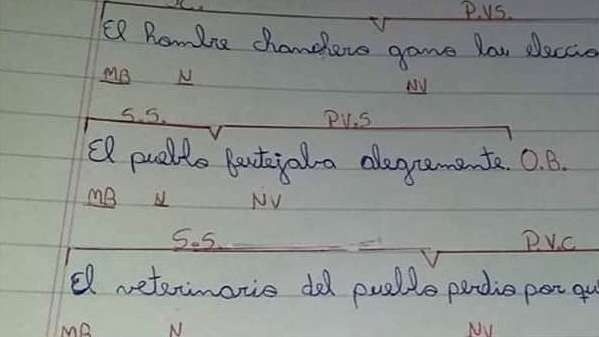 P.V.S.
El hombre chanchero gano las eleccio
MB N NV
S.S. P.V.S
El pueblo festejaba alegremente. O.B.
MB N NV
S.S. P.V.C
El veterinario del pueblo perdio por qu
MB N NV